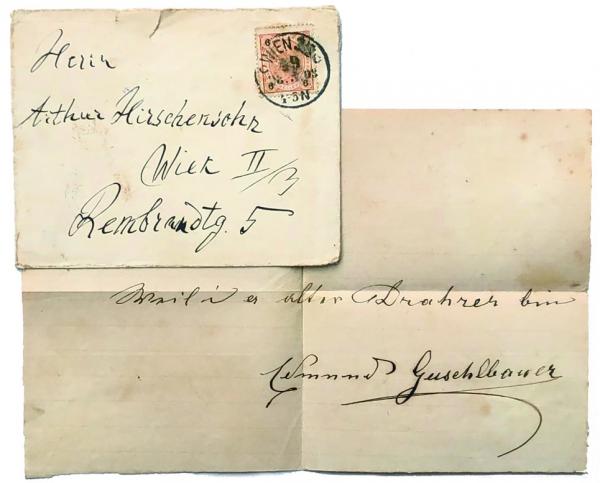 Herrn
Arthur Hirschensohn
Wien II/3
Rembrandtg. 5
WIEN
Weil i a alter Drahrer bin
Edmund Guschlbauer